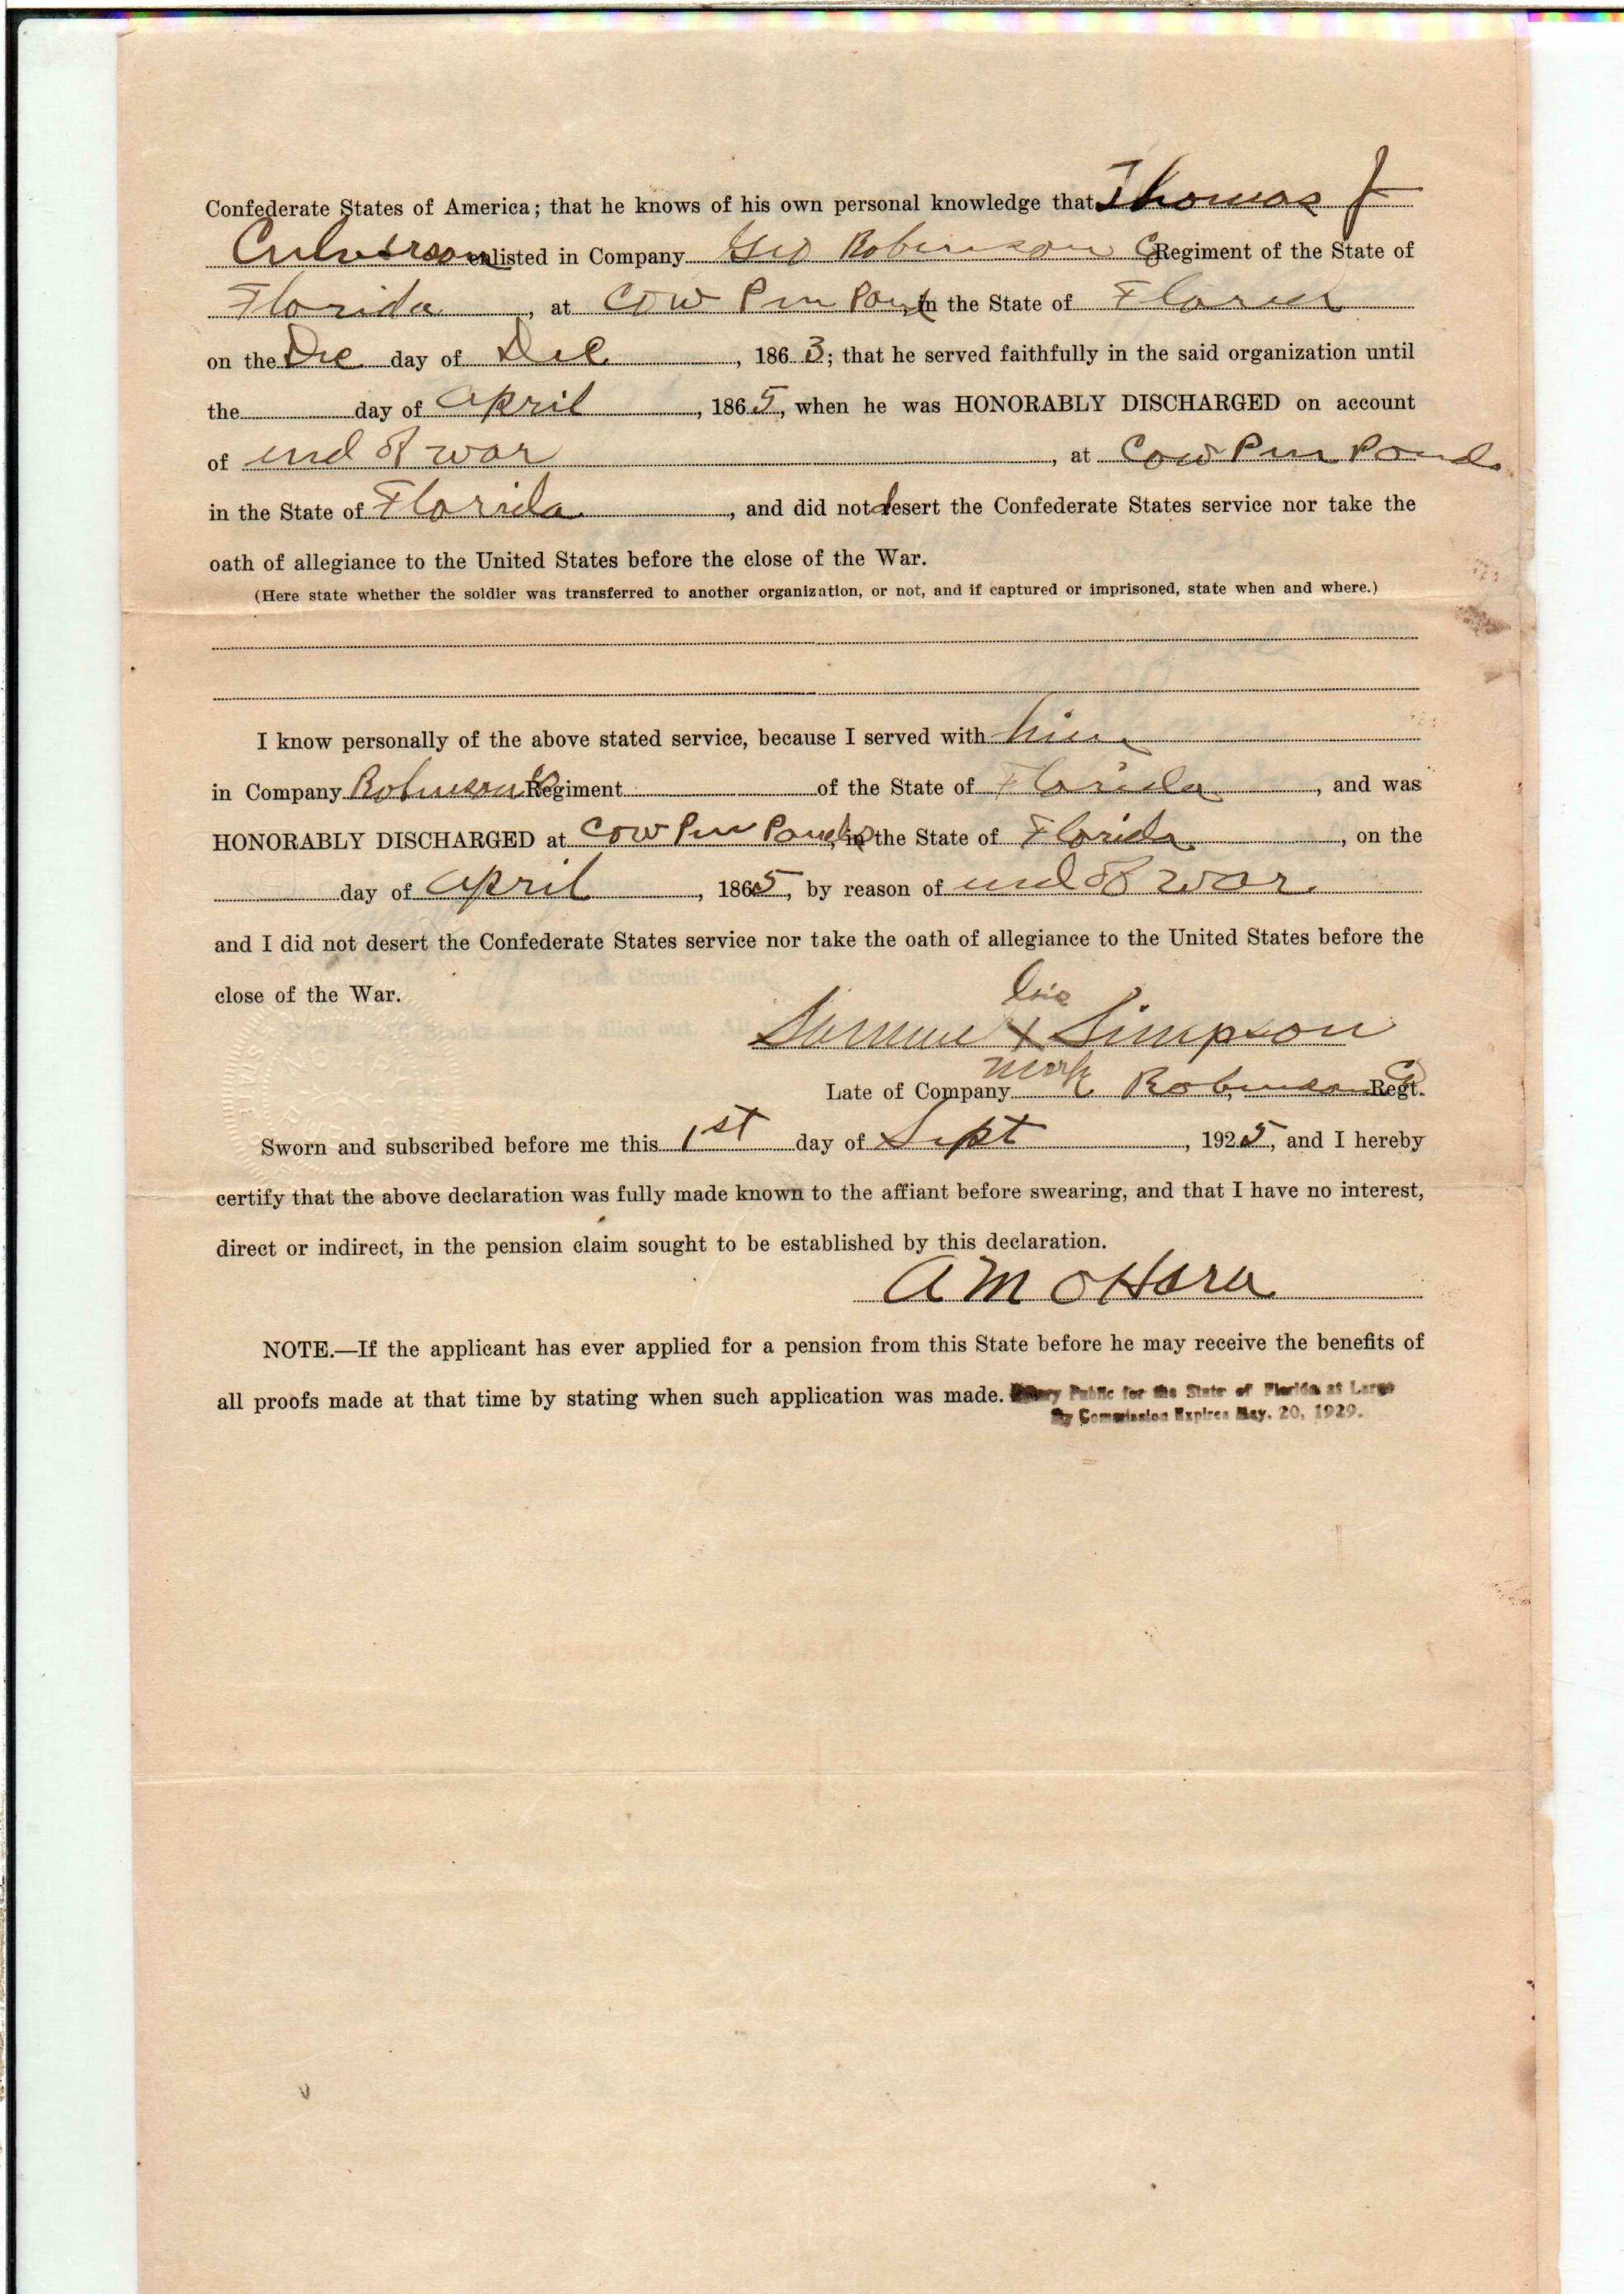 Confederate States of America; that he knows of his own personal knowledge that Thomas J
Culverson enlisted in Company Geo Robinson C Regiment of the State of
Florida, at Cow Pen Pond in the State of Florida
on the Dec day of Dec, 1863; that he served faithfully in the said organization until
the day of April, 1865, when he was HONORABLY DISCHARGED on account
of end of war, at Cow Pen Pond
in the State of Florida, and did not desert the Confederate States service nor take the
oath of allegiance to the United States before the close of the War.
(Here state whether the soldier was transferred to another organization, or not, and if captured or imprisoned, state when and where.)
I know personally of the above stated service, because I served with him
in Company Robinson Regiment of the State of Florida, and was
HONORABLY DISCHARGED at Cow Pen Pond, in the State of Florida, on the
day of April, 1865, by reason of end of war.
and I did not desert the Confederate States service nor take the oath of allegiance to the United States before the
close of the War.
his
Samuel X Simpson
mark
Late of Company Robinson C Regt.
Sworn and subscribed before me this 1st day of Sept, 1925, and I hereby
certify that the above declaration was fully made known to the affiant before swearing, and that I have no interest,
direct or indirect, in the pension claim sought to be established by this declaration.
A M OHara
NOTE.—If the applicant has ever applied for a pension from this State before he may receive the benefits of
all proofs made at that time by stating when such application was made.
Notary Public for the State of Florida at Large
My Commission Expires May. 20, 1929.